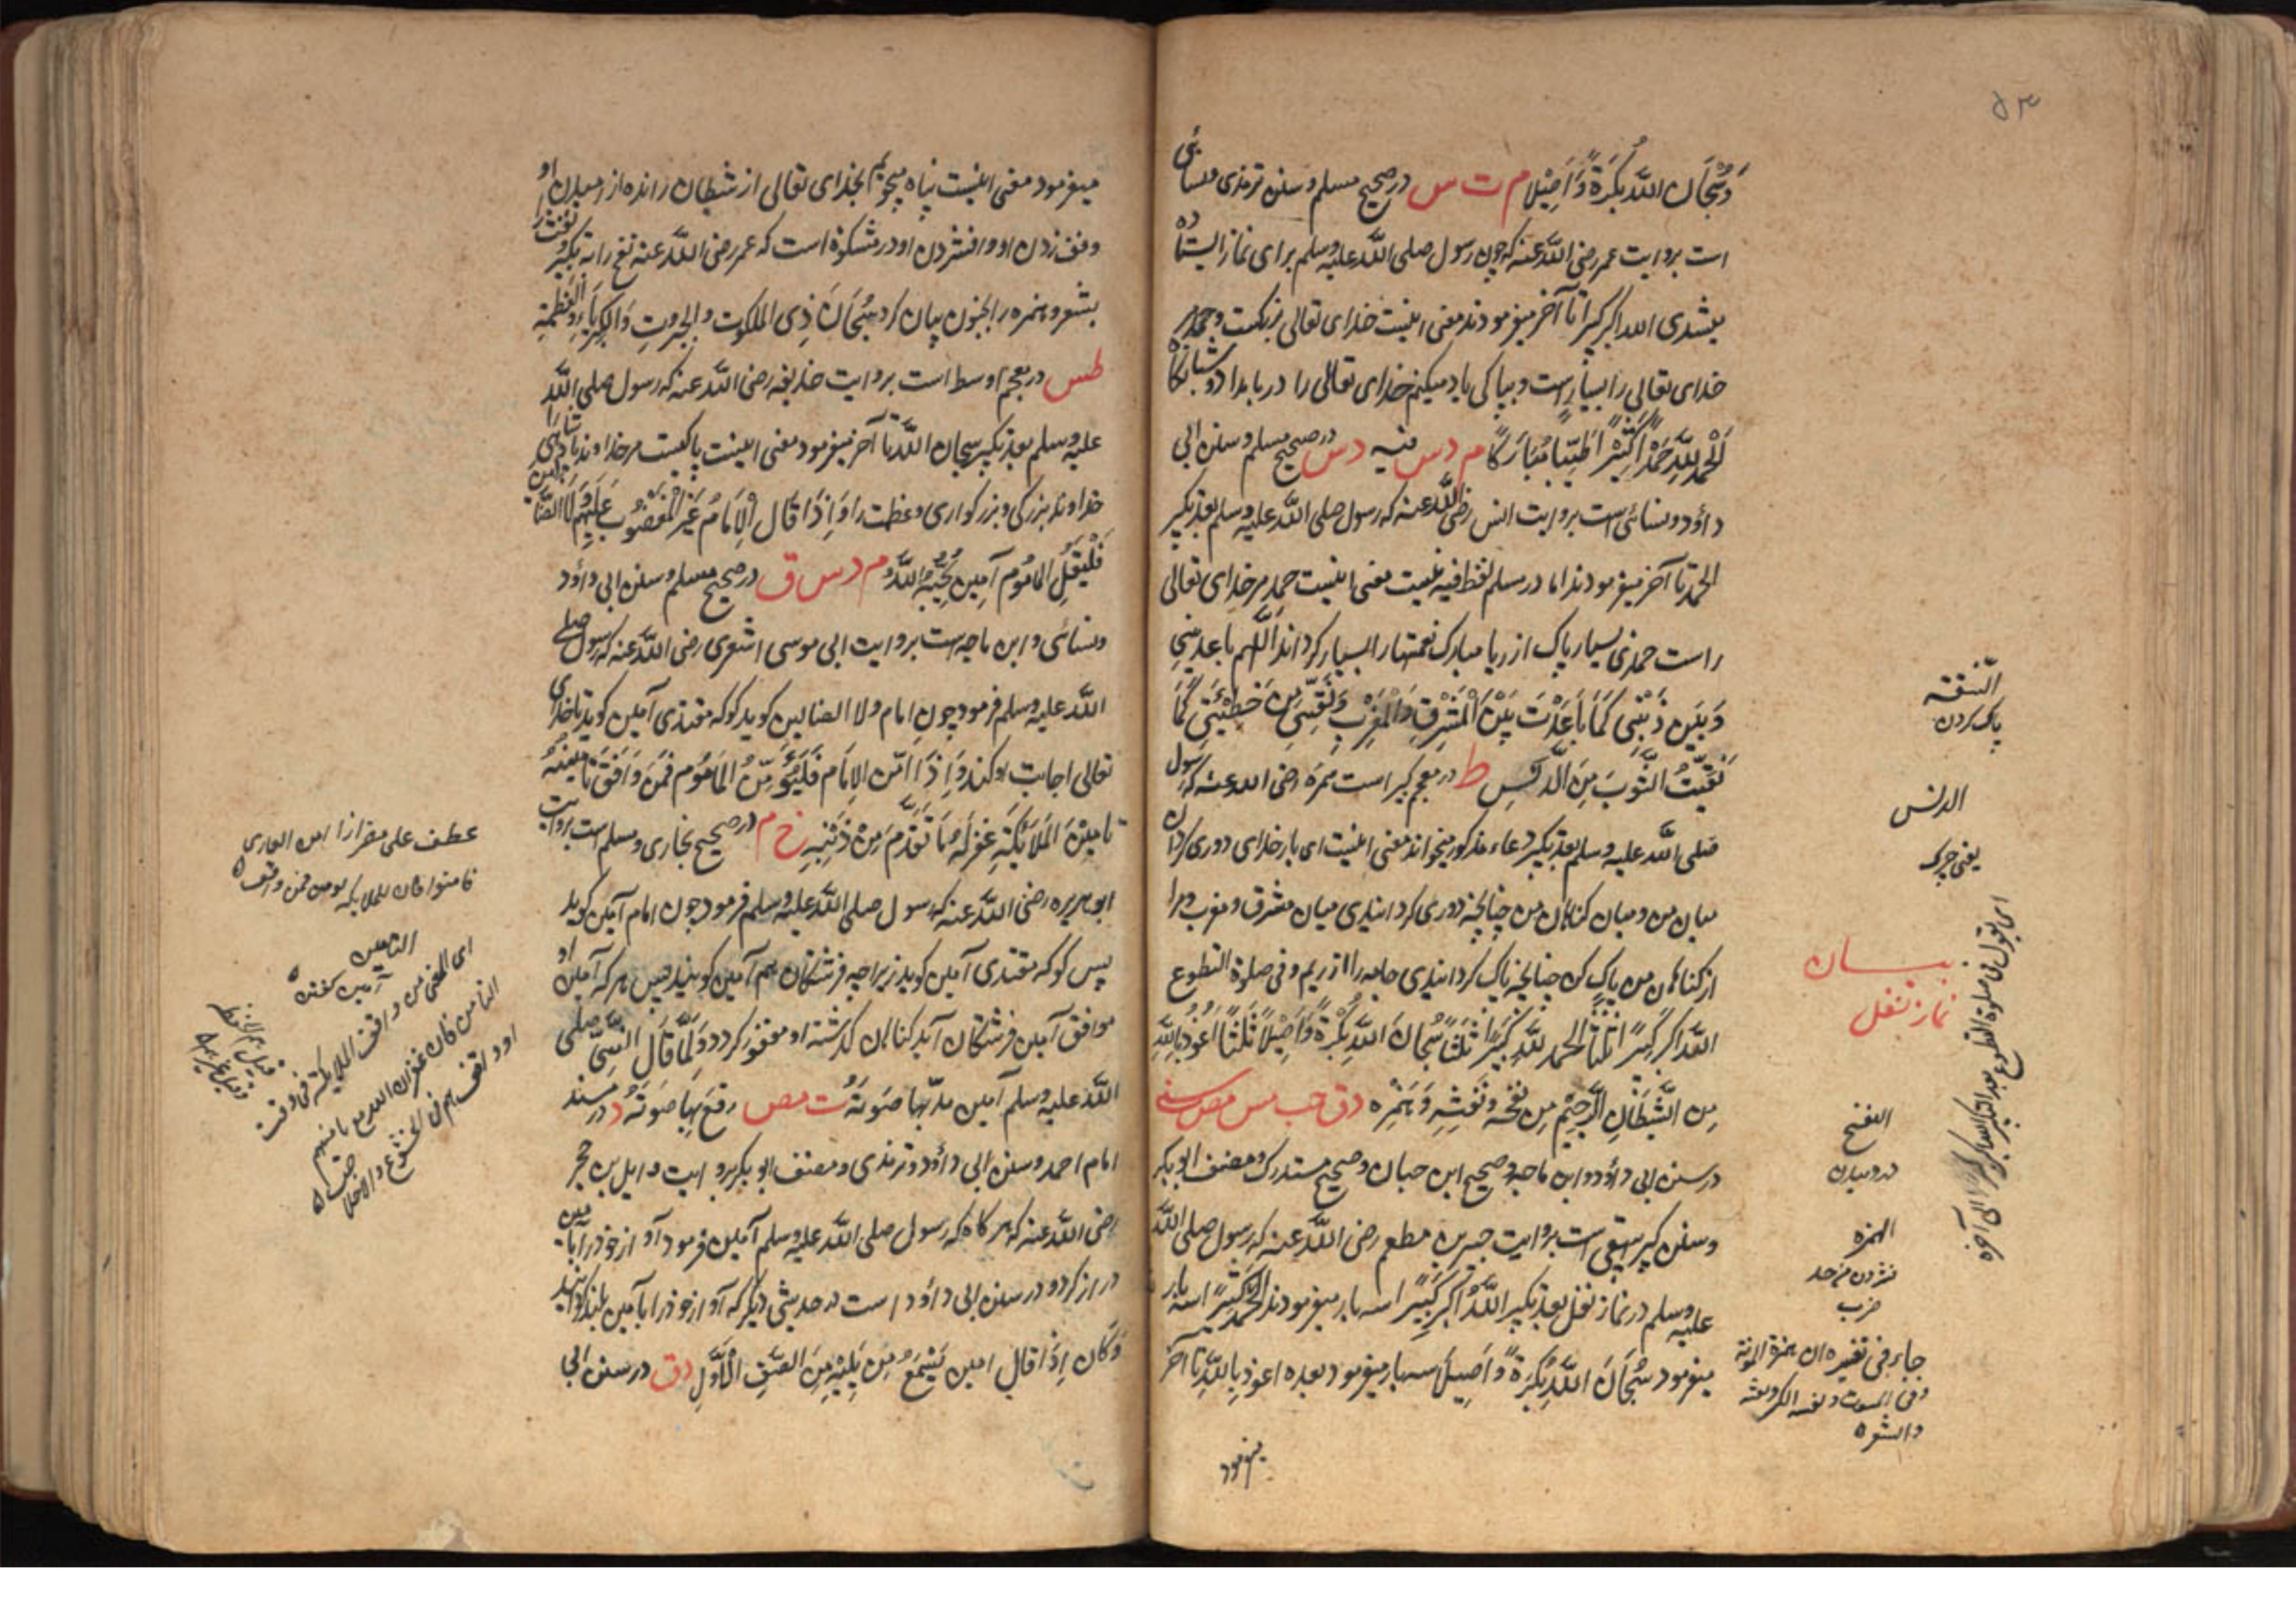 ۵۳
وَسُبْحَانَ اللّٰهِ بُكْرَةً وَّاَصِيْلًا م ت س در صحیح مسلم و سنن ترمذی و نسائی
است بروایت عمر رضی اللّٰه عنه که چون رسول صلی اللّٰه علیه وسلم برای نماز ایستاده
میشدی الله اکبر کبیرا تا آخر میفرمودند معنی اینست خدای تعالی بزرکست و حمد مر
خدای تعالی را بسیار است و بپاکی یاد میکنم خدای تعالی را در بامداد و شبانگاه
اَلْحَمْدُ لِلّٰهِ حَمْدًا كَثِيْرًا طَيِّبًا مُبَارَكًا م د س فیه د س در صحیح مسلم و سنن ابی
داؤد و نسائی است بروایت انس رضی اللّٰه عنه که رسول صلی اللّٰه علیه وسلم بعد تکبیر
الحمد تا آخر میفرمودند اما در مسلم لفظ فیه نیست معنی اینست حمد مر خدای تعالی
راست حمدی بسیار پاک از ریا مبارک نعمتها را بسیار کرداند اَللّٰهُمَّ بَاعِدْ بَيْنِي
وَبَيْنَ ذَنْبِي كَمَا بَاعَدْتَ بَيْنَ الْمَشْرِقِ وَالْمَغْرِبِ وَنَقِّنِي مِنْ خَطِيْئَتِي كَمَا
نَقَّيْتَ الثَّوْبَ مِنَ الدَّنَسِ ط در معجم کبیر است سمره رضی الله عنه که رسول
صلی اللّٰه علیه وسلم بعد تکبیر دعاء مذکور میخواند معنی اینست ای بار خدای دوری کردان
میان من و میان کناهان من چنانچه دوری کردانیدی میان مشرق و مغرب و مرا
از کناهان من پاک کن چنانچه پاک کردانیدی جامه را از ریم و فی صلوة التطوع
اللّٰهُ اَكْبَرُ كَبِيْرًا ثَلٰثًا اَلْحَمْدُ لِلّٰهِ كَثِيْرًا ثَلٰثًا سُبْحَانَ اللّٰهِ بُكْرَةً وَّاَصِيْلًا ثَلٰثًا اَعُوْذُ بِاللّٰهِ
مِنَ الشَّيْطَانِ الرَّجِيْمِ مِنْ نَفْخِهٖ وَنَفْثِهٖ وَهَمْزِهٖ د ق حب مس مص سنی
در سنن ابی داؤد و ابن ماجه و صحیح ابن حبان و صحیح مستدرک و مصنف ابوبکر
و سنن کبیر بیهقی است بروایت جبیر بن مطعم رضی اللّٰه عنه که رسول صلی اللّٰه
علیه وسلم در نماز نفل بعد تکبیر اللّٰهُ اَكْبَرُ كَبِيْرًا سه بار میفرمودند الحمد لله كَثِيْرًا سه بار
میفرمود سُبْحَانَ اللّٰهِ بُكْرَةً وَّاَصِيْلًا سه بار میفرمود بعده اعوذ بِاللّٰهِ تا آخر
میفرمود
التنقیه
پاک کردن
الدنس
یعنی چرک
بیان
نماز نفل
ای یقول فی صلوة التطوع بعد التکبیر الله اکبر کبیرا الی آخره
النفخ
در دمیدن
الهمزه
حرب
جاء فی تفسیره ان همزه الموتة
والشعره
میفرمود معنی اینست پناه میجویم بخدای تعالی از شیطان رانده از دمیدن او
و نفث زدن او و افشردن او در مشکوة است که عمر رضی اللّٰه عنه نفخ را به تکبر و نفث را
بشعر و همزه را بجنون بیان کرد سُبْحَانَ ذِي الملكوت والجبروتِ وَالْكِبْرِيَاءِ وَالْعَظَمَةِ
طس در معجم اوسط است بروایت حذیفه رضی اللّٰه عنه که رسول صلی اللّٰه
علیه وسلم بعد تکبیر سبحان اللّٰه تا آخر میفرمود معنی اینست پاکیست مر خداوند پادشاهی را
خداوند بزرکی و بزرکواری و عظمت را وَاِذَا قَالَ الْاِمَامُ غَيْرِ الْمَغْضُوْبِ عَلَيْهِمْ وَلَا الضَّالِّيْنَ
فَلْيَقُلِ الْمَامُوْمُ آمِيْن يُجِبْهُ اللّٰهُ م د س ق در صحیح مسلم و سنن ابی داؤد
و نسائی و ابن ماجه است بروایت ابی موسی اشعری رضی اللّٰه عنه که رسول صلی
اللّٰه علیه وسلم فرمود چون امام ولا الضالین کوید کو که مقتدی آمین کوید تا خدای
تعالی اجابت او کند وَاِذَا اَمَّنَ الْاِمَام فَلْيُؤَمِّنِ الْمَامُوْم فَمَنْ وَافَقَ تَامِيْنُهُ
تَامِيْنَ الْمَلَائِكَةِ غُفِرَ لَهُ مَا تَقَدَّمَ مِنْ ذَنْبِهٖ خ م در صحیح بخاری و مسلم است بروایت
ابو هریره رضی اللّٰه عنه که رسول صلی اللّٰه علیه وسلم فرمود چون امام آمین کوید
پس کو که مقتدی آمین کوید زیرا چه فرشتکان هم آمین کویند پس هر که آمین او
موافق آمین فرشتکان آید کناهان کذشته او مغفور کردد وَلَمَّا قَالَ النَّبِيُّ صلی
اللّٰه علیه وسلم آمین مدّ بها صَوتَهُ ت مص رفع بِهَا صَوتَهُ د در مسند
امام احمد و سنن ابی داؤد و ترمذی و مصنف ابوبکر بروایت وایل بن حجر
رضی اللّٰه عنه که هر کاه که رسول صلی اللّٰه علیه وسلم آمین فرمود آواز خود را بآمین
دراز کرد و در سنن ابی داؤد است در حدیثی دیکر که آواز خود را بآمین بلند کردانید
وَكَانَ اِذَا قال امین يَسْمَعُ مَنْ يَلِيْهِ مِنَ الصَّفِّ الْاَوَّلِ د ق در سنن ابی
التامین
آمین گفتن